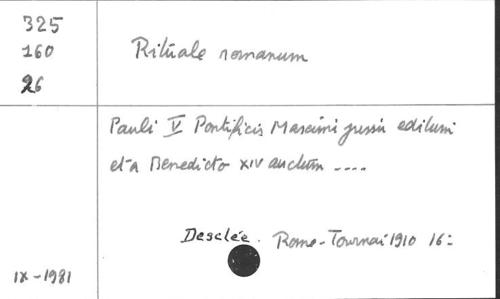 325
160
26
Rituale romanum
Pauli V Pontificis Maximi jussu editum
et a Benedicto XIV auctum ....
Desclée. Rome-Tournai 1910 16º
IX-1981